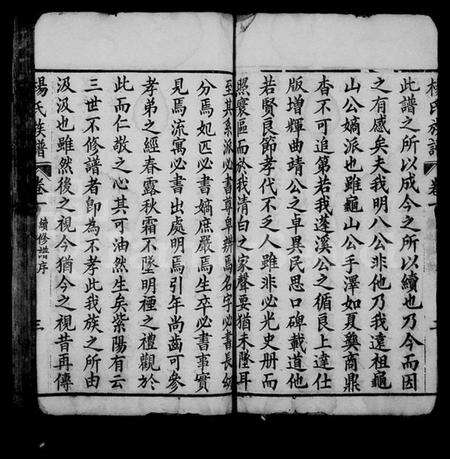 此譜之所以成今之所以續也乃今而因
之有感矣夫我明八公非他乃我遠祖龜
山公嫡派也雖龜山公手澤如夏彝商鼎
杳不可追第若我蓬溪公之循良上達仕
版增輝曲靖公之卓異民思口碑載道他
若賢良節孝代不乏人雖非必光史册而
照寰區而於我清白之家聲要猶未墜耳
至其系派必書尊卑辨焉名字必書長幼
分焉妃匹必書嫡庶嚴焉生卒必書事實
見焉流寓必書出處明焉引年尚齒可參
孝弟之經春露秋霜不墜明禋之禮觀於
此而仁敬之心其可油然生矣紫陽有云
三世不修譜者卽為不孝此我族之所由
汲汲也雖然後之視今猶今之視昔再傳
楊氏族譜 卷 續修譜序 三